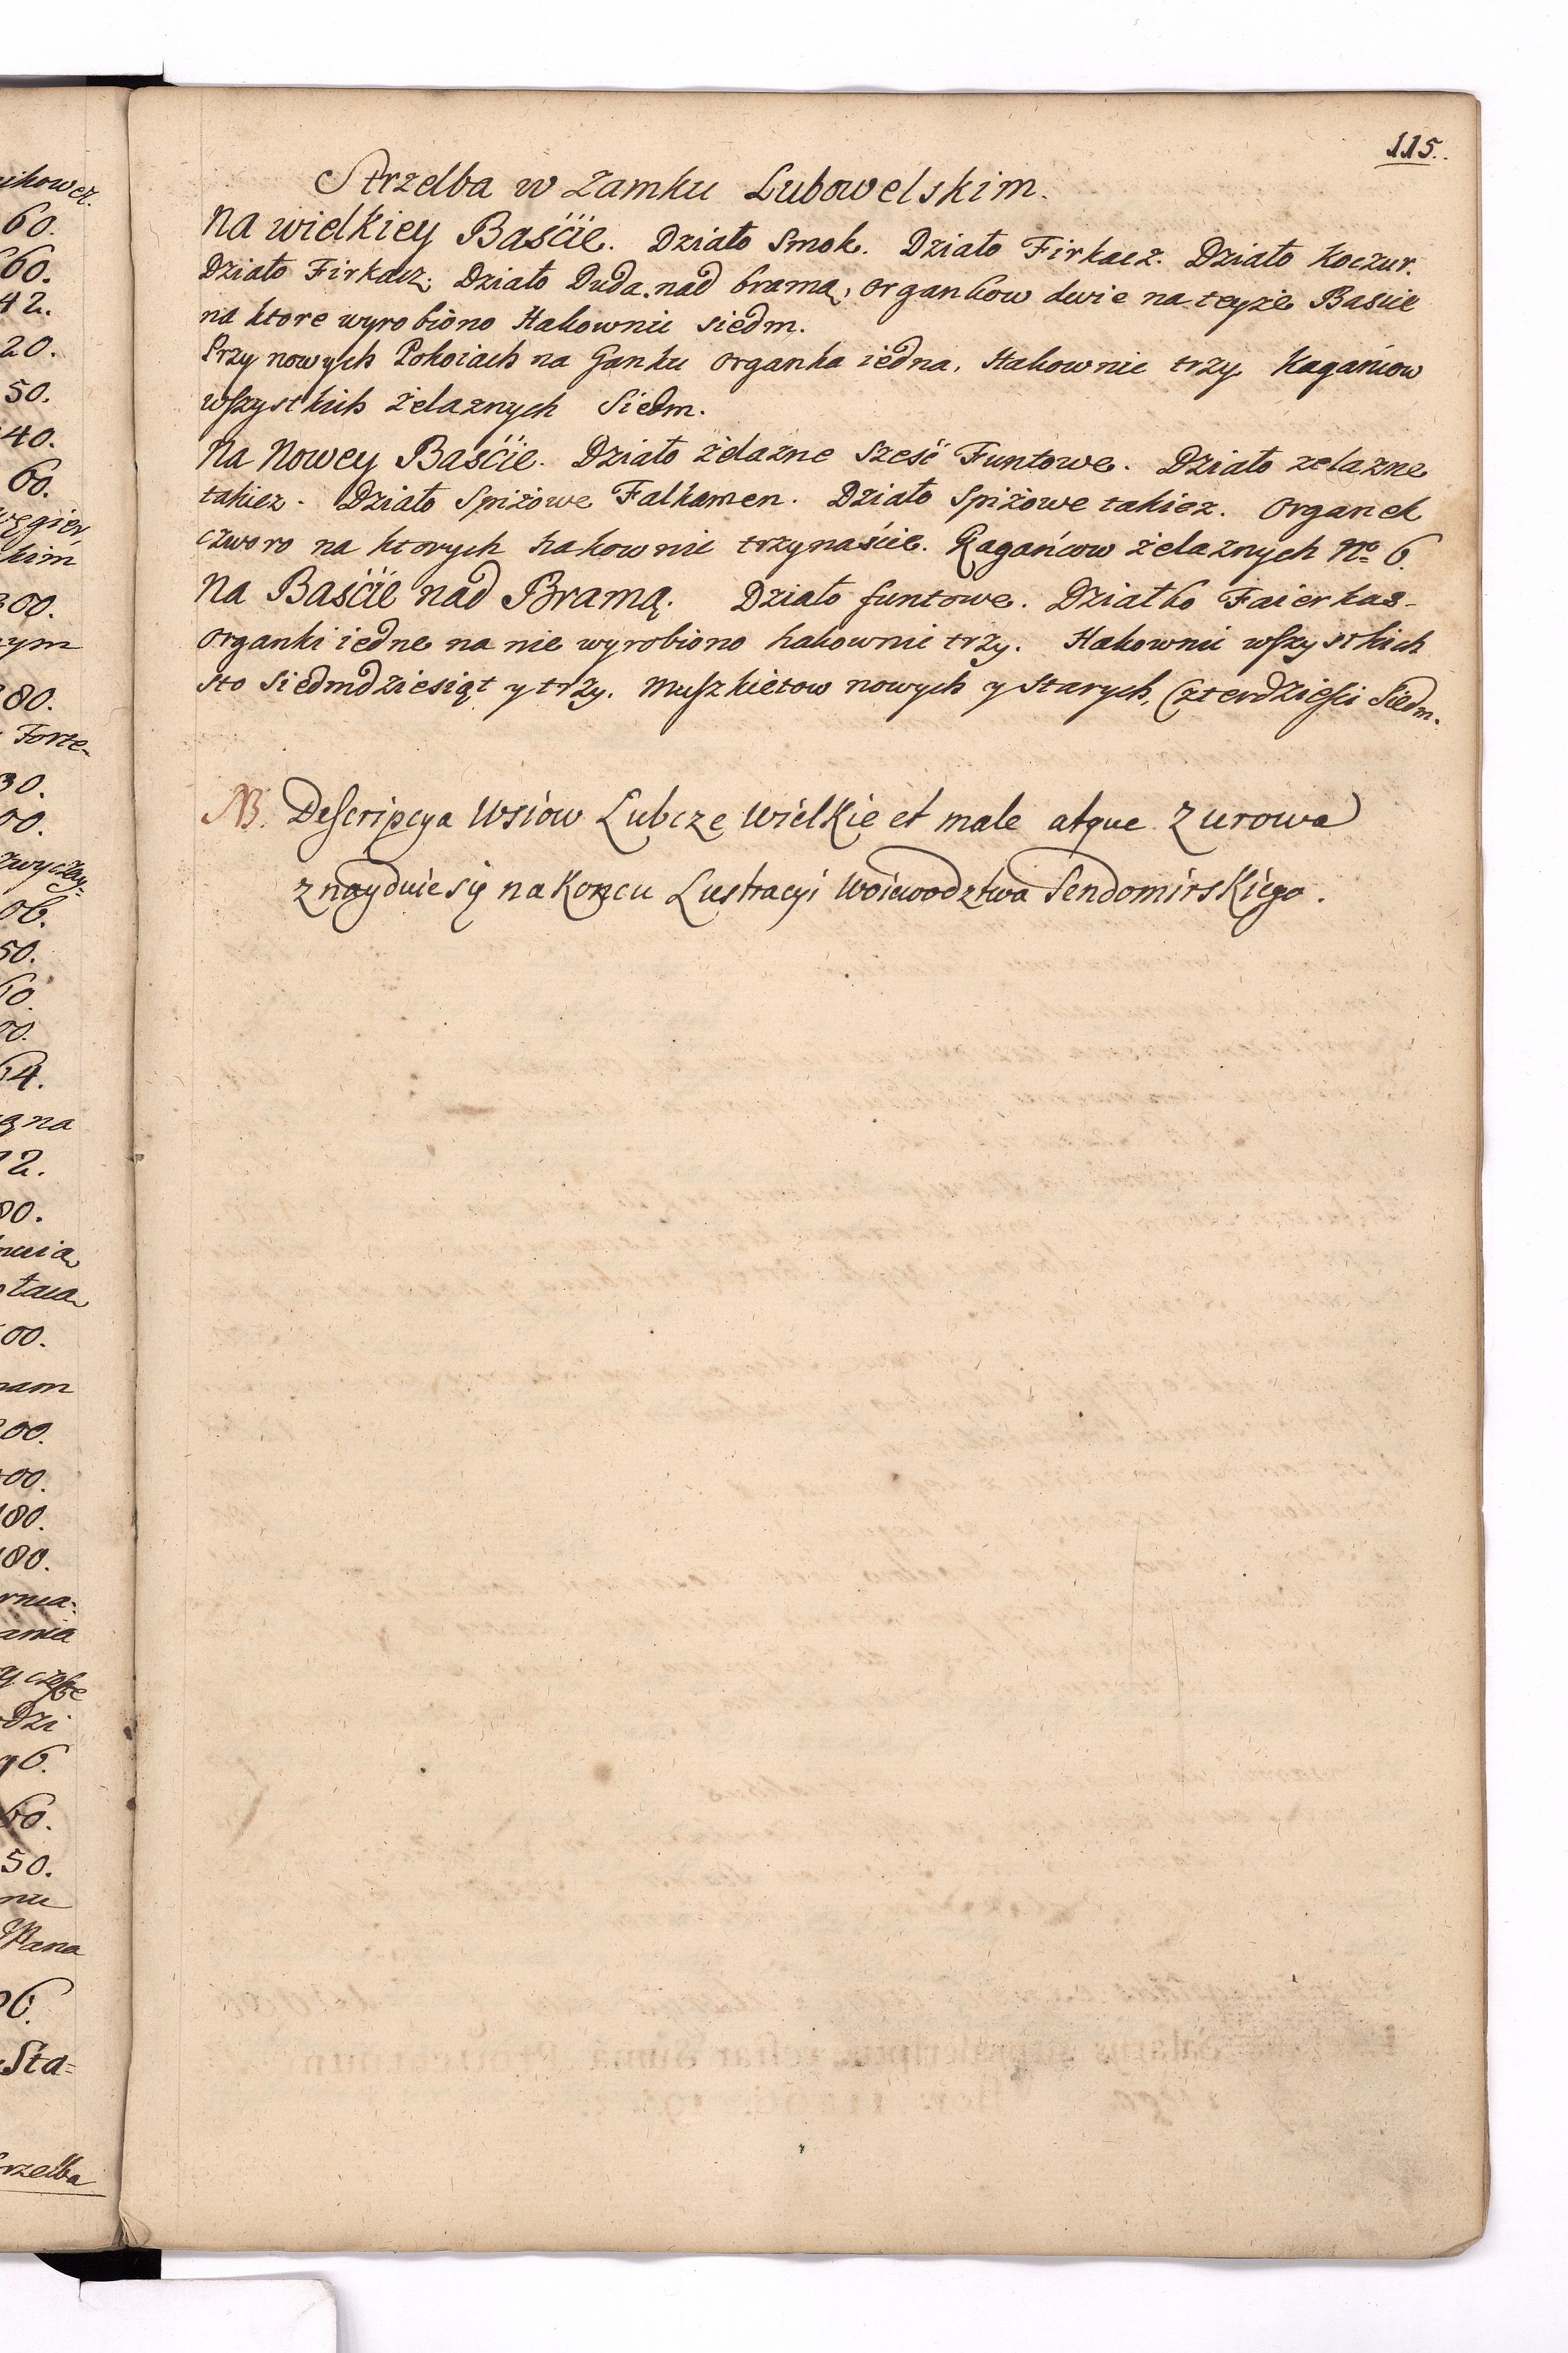 115.
Strzelba w Zamku Lubowelskim.
Na wielkiey Baśćie. Działo Smok. Działo Firkacz. Działo Koczur.
Działo Firkacz. Działo Duda. nad bramą, organkow dwie na teyże Baście
na ktore wyrobiono Hakownic siedm.
Przy nowych Pokoiach na Ganku organka iedna, Hakownic trzy Kagańcow
wszystkich żelaznych Siedm.
Na Nowey Baśćie. Działo żelazne sześć Funtowe. Działo zelazne
takiez. Działo Spiżowe Falkamen. Działo Spiżowe takiez. Organek
czworo na ktorych hakownic trzynaście. Kagańcow żelaznych No 6.
Na Baśćie nad Bramą. Działo funtowe. Działko Faierkas-
organki iedne na nie wyrobiono hakownic trzy. Hakownic wszystkich
sto siedmdziesiąt y trzy. Muszkietow nowych y starych, Czterdzieści Siedm.
NB. Descripcya Wsiow Lubcze Wielkie et male atque Zurowa
znayduie się na Koncu Lustracyi Woiewodztwa Sendomirskiego.
60.
60.
42.
20.
50.
40.
60.
węgier
kim
300.
ym
80.
Forte-
30.
00.
zwyczay-
06.
50.
60.
00.
64.
gna
12.
00.
00.
nam
200.
00.
180.
180.
ania
dzi
96.
60.
50.
Pana
96.
Sta=
rzelba